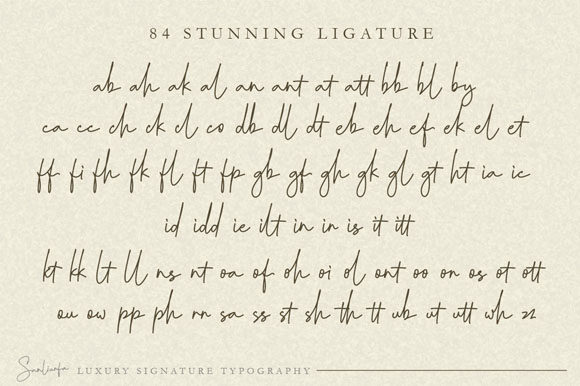 84 STUNNING LIGATURE
ab ah ak al an ant at att bb bl by
ca cc ch ck cl co db dl dt eb eh ef ek el et
ff fi fh fk fl ft fp gb gf gh gk gl gt ht ia ic
id idd ie ilt in in is it itt
kt kk lt ll ns nt oa of oh oi ol ont oo on os ot ott
ou ow pp ph rn sa ss st sh th tt ub ut utt wh
LUXURY SIGNATURE TYPOGRAPHY